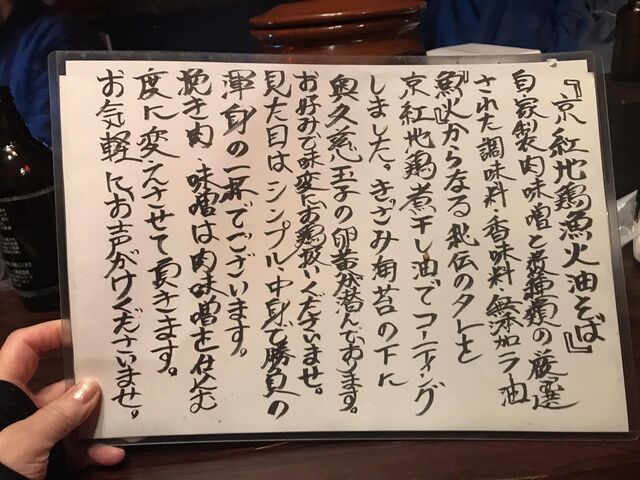 『京紅地鶏魚火油そば』
自家製肉味噌と数種類の厳選
された調味料・香味料・無添加ラー油
『魚火』からなる秘伝のタレと
京紅地鶏煮干し油でコーティング
しました。きざみ海苔の下に
奥久慈玉子の卵黄が潜んでおります。
お好みで味変にお鶏扱いくださいませ。
見た目はシンプル中身で勝負の
渾身の一杯でございます。
挽き肉・味噌は肉味噌を仕込む
度に変えさせて頂きます。
お気軽にお声がけくださいませ。